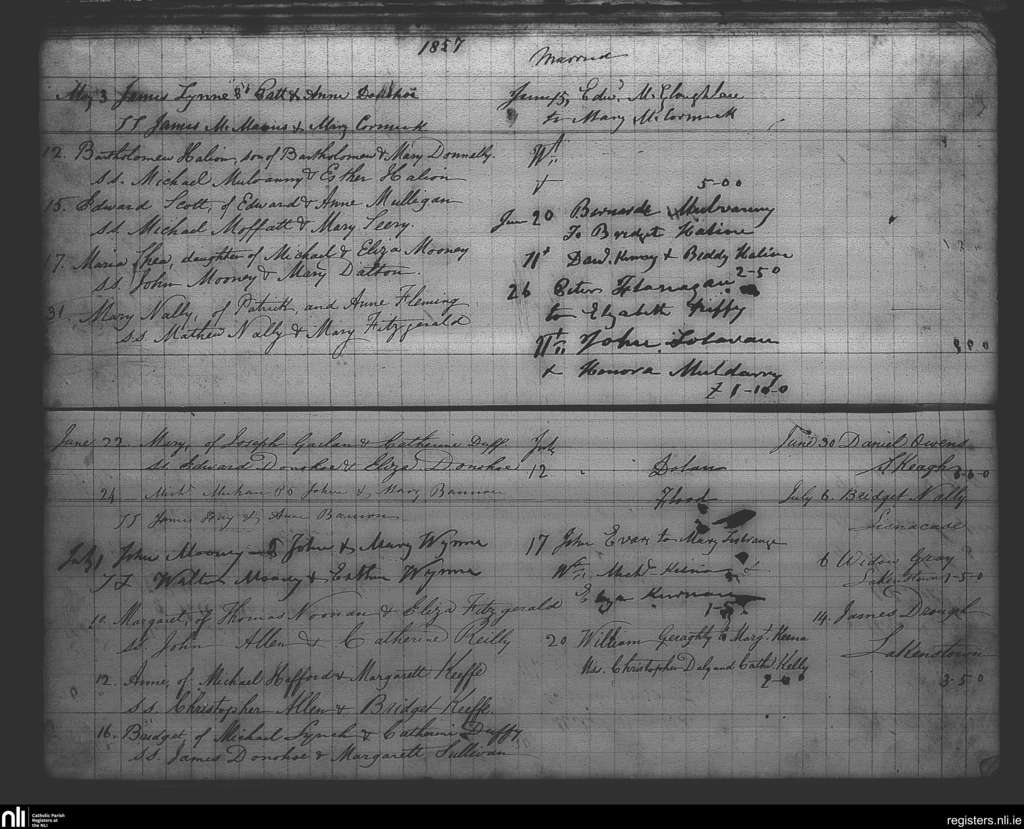 1857
Married
May 3 James Lynne So Patt & Anne Donohoe
SS James McManus & Mary Cormick
12. Bartholomew Halion, son of Bartholomew & Mary Donnally.
S.S. Michael Mulvanny & Esther Halion
15. Edward Scott, of Edward & Anne Mulligan
S.S. Michael Moffatt & Mary Seery.
17. Maria Shea, daughter of Michael & Eliza Mooney
S.S. John Mooney & Mary Dalton.
31. Mary Nally, of Patrick, and Anne Fleming
S.S. Mathew Nally & Mary Fitzgerald
June 15, Edwd McGloughlan
to Mary McCormick
Wt
5-00
June 20 Mulvanny
To Bridget Haline
Wt & Biddy Haline
2-50
26 Peter Flanagan
to Elizabeth Griffy
Wt John
& Honora Muldarry
£ 1-10-0
June 22. Mary, of Joseph & Catherine Duff.
SS Edward Donohoe & Eliza Donohoe
24 Michl So John & Mary Bannon
SS James & Anne Bannon
July 1 John Mooney So John & Mary Wynne
SS Walter & Esther Wynne
10. Margaret, of Thomas Noonan & Eliza Fitzgerald
SS. John Allen & Catherine Reilly
12. Anne, of Michael Hefford & Margarett Keeffe
S.S. Christopher Allen & Bridget Keeffe.
16. Bridget, of Michael Lynch & Catherine Duffy
S.S. James Donohoe & Margarett Sullivan
July
12 Dolan
Flood
17 John Evars to Mary
Wt Michl Keena &
Eliza Kiernan
1-5
20 William Geraghty to Margt Keena
Ws. Christopher Daly and Cathe Kelly
2-00
June 30 Daniel Owens
Skeagh
July 6. Bridget Nally
6 Widow Gray
Lakenstown 1-5-0
14. James Drough
Lakenstown
3-50
nli
Catholic Parish
Registers at
the NLI
registers.nli.ie